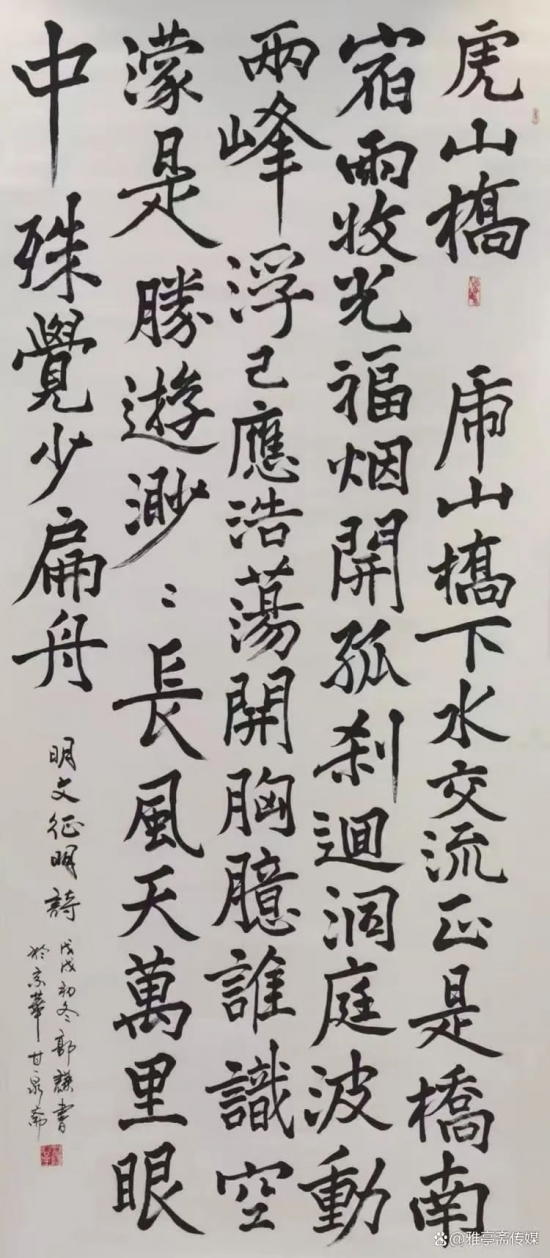 虎山橋 虎山橋下水交流正是橋南
宿雨收光福烟開孤刹迴洞庭波動
兩峰浮已應浩蕩開胸臆誰識空
濛是勝遊渺〻長風天萬里眼
中殊覺少扁舟
明文徵明詩
戊戌初冬郭謙書
於京華甘泉斋
@雅亭斋传媒